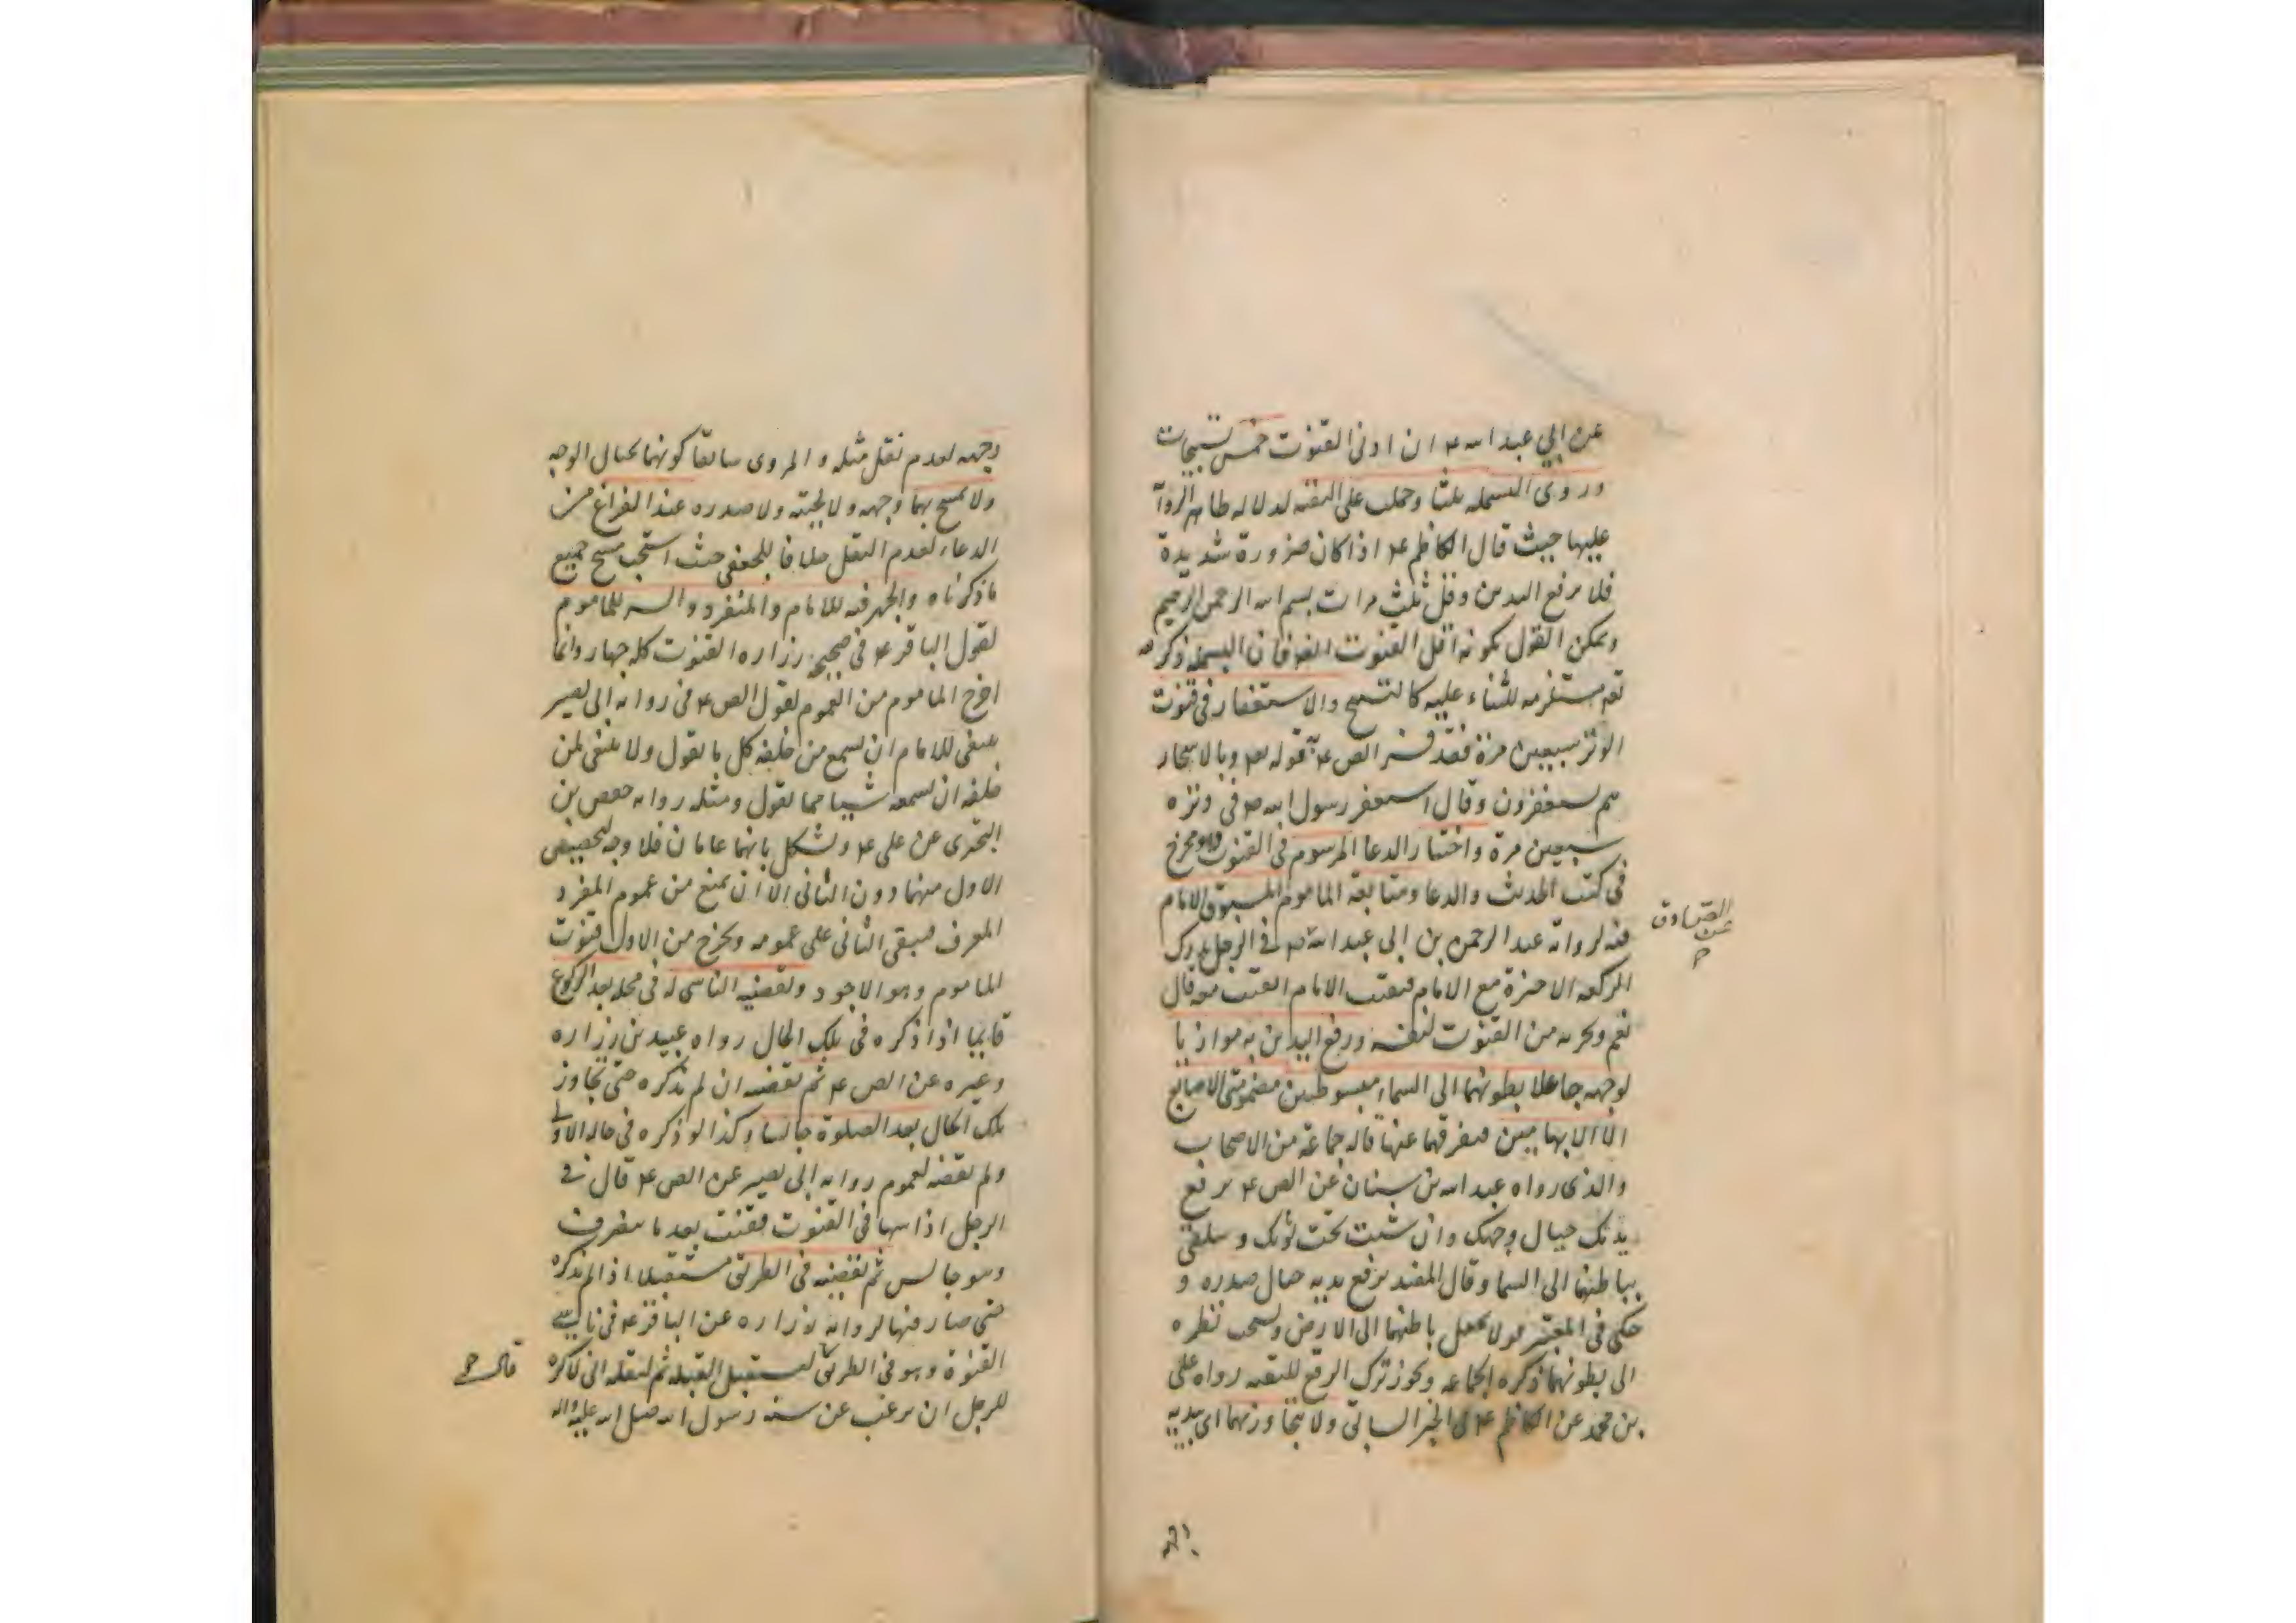 عن ابي عبد الله ع ان ادنى القنوت خمس تسبيحات
و روى البسملة ثلثا وحملت على التقية لدلالة ظاهر الروا
عليها حيث قال الكاظم ع اذا كان ضرورة شديدة
فلا ترفع اليدين وقل ثلث مرات بسم الله الرحمن الرحيم
ويمكن القول بكونه اقل القنوت ايضا فان البسملة ذكر الله
تعم مستلزمه للثناء عليه كالتسبيح والاستغفار في قنوت
الوتر سبعين مرة فقد فسر الص ع به قوله تع وبالاسحار
هم يستغفرون وقال استغفر رسول الله ص في وتره
سبعين مرة واختيار الدعا المرسوم في القنوت وهو مخرج
في كتب الحديث والدعا ومتابعة الماموم المسبوق الامام
فيه لرواية عبد الرحمن بن ابي عبد الله ص في الرجل يدرك
الصادق
عن
الركعة الاخيرة مع الامام فيقنت الامام ايقنت معه قال
نعم ويجزيه من القنوت لنفسه ورفع اليدين به موازيا
لوجهه جاعلا بطونهما الى السماء مبسوطتين مضمومتي الاصابع
الا الابهامين فيفرقهما عنها قاله جماعة من الاصحاب
والذي رواه عبد الله بن سنان عن الص ع ترفع
يديك حيال وجهك وان شئت تحت ثوبك وتتلقى
بباطنهما الى السما وقال المفيد يرفع يديه حيال صدره و
حكى في المعتبر قولا يجعل باطنهما الى الارض ويستحب نظره
الى بطونهما ذكره الجماعة ويجوز ترك الرفع للتقية رواه على
بن محمد عن الكاظم ع في الخبر السابق ولا يتجاوز بهما اى بيديه
وجهه لعدم نقل مثله و المروى سابقا كونهما بحيال الوجه
ولا يمسح بهما وجهه ولا لحيته ولا صدره عند الفراغ من
الدعاء لعدم النقل خلافا للجعفي حيث استحب مسح جميع
ما ذكرناه والجهر فيه للامام والمنفرد والسر للماموم
لقول الباقر ع في صحيحة زراره القنوت كله جهار وانما
اخرج الماموم من العموم لقول الص ع في رواية ابى بصير
ينبغى للامام ان يسمع من خلفه كل ما يقول ولا ينبغى لمن
خلفه ان يسمعه شيئا مما يقول ومثله رواية حفص بن
البخترى عن على ع ويشكل بانهما عامان فلا وجه لتخصيص
الاول منهما دون الثانى الا ان يمنع من عموم المفرد
المعرف فيبقى الثانى على عمومه ويخرج من الاول قنوت
الماموم وهو الاجود ويقضيه الناسى له في محله بعد الركوع
قايما اذا ذكره في تلك الحال رواه عبيد بن زراره
وغيره عن الص ع ثم يقضيه ان لم يذكره حتى تجاوز
تلك الحال بعد الصلوة جالسا وكذا لو ذكره في حاله الاولى
ولم يقضه لعموم رواية ابى بصير عن الص ع قال في
الرجل اذا سها في القنوت فقنت بعد ما ينصرف
وهو جالس ثم يقضيه في الطريق مستقبلا اذا لم يذكره
حتى صار فيها لرواية زراره عن الباقر ع في ناسى
القنوة وهو في الطريق يستقبل القبلة ثم ليقله انى لاكره
للرجل ان يرغب عن سنة رسول الله صلى الله عليه واله